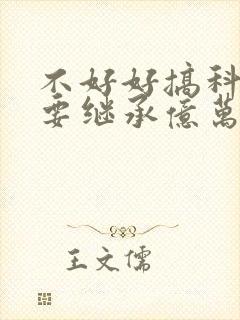 不好好搞科
要继承億萬
王文儒